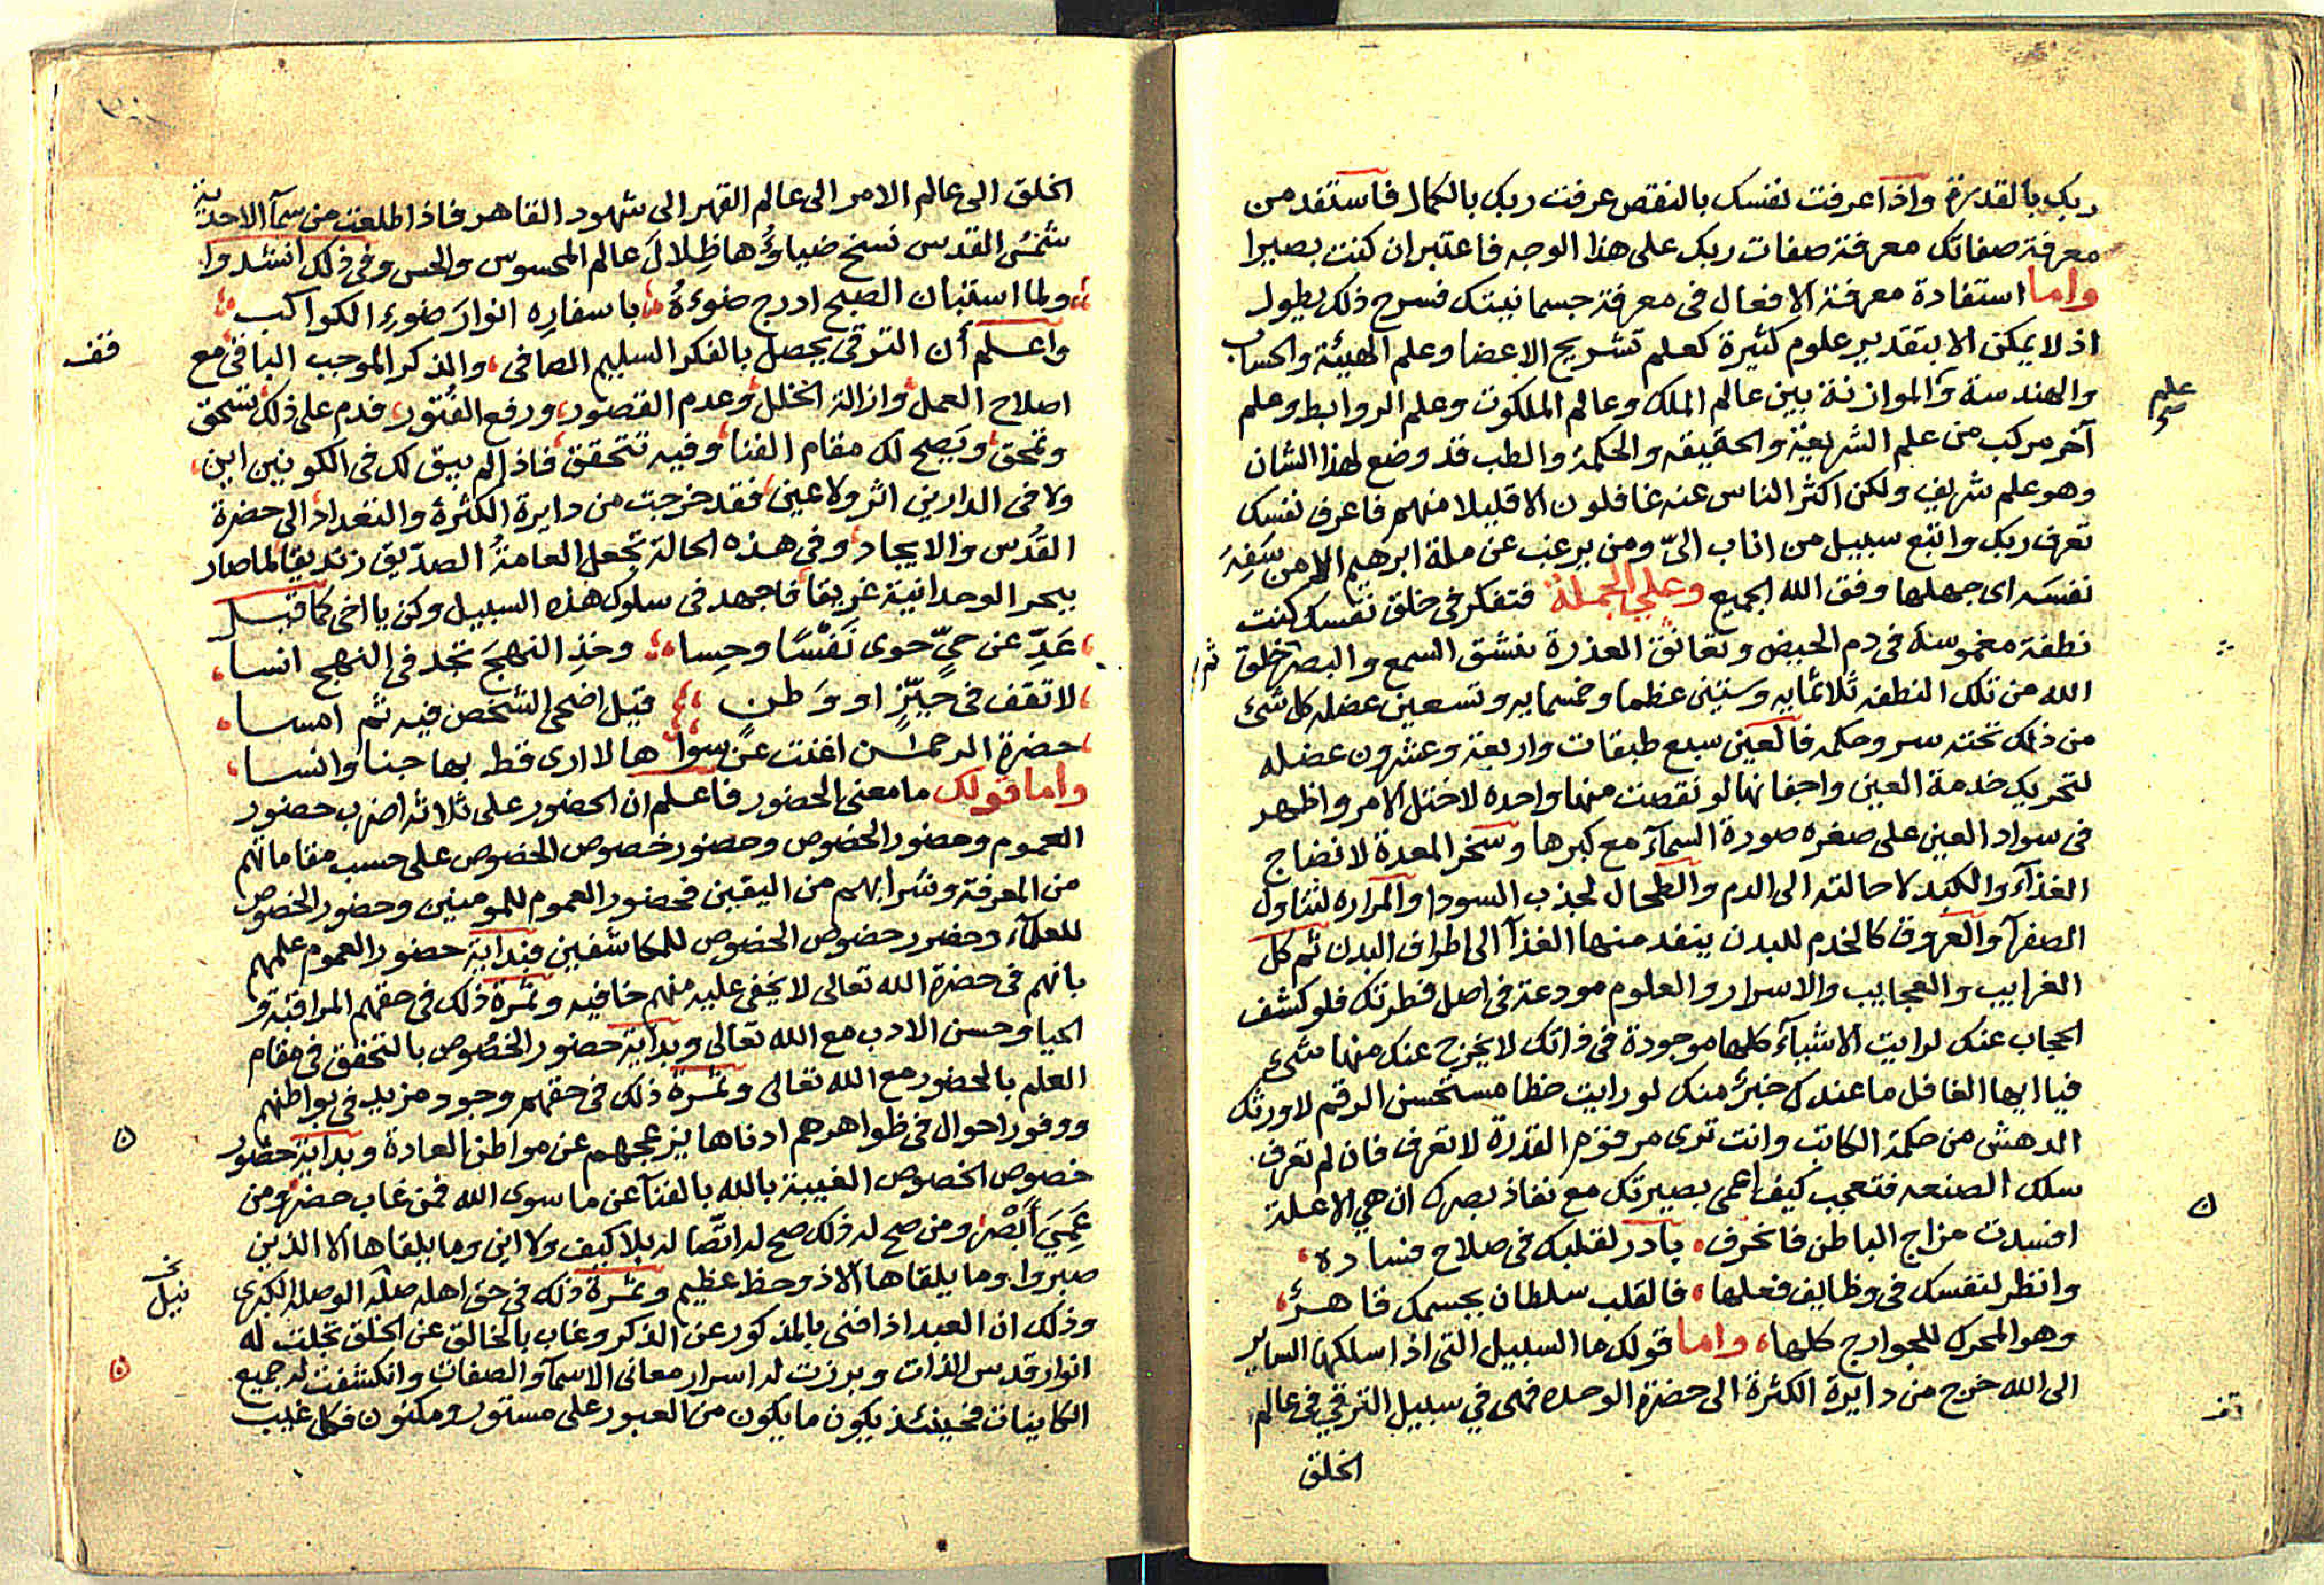 ربك بالقدرة واذا عرفت نفسك بالنقص عرفت ربك بالكمال فاستفد من
معرفة صفاتك معرفة صفات ربك على هذا الوجه فاعتبر ان كنت بصيرا
واما استفادة معرفة الافعال فى معرفة جسمانيتك فسرح ذلك يطول
اذ لا يمكن الا بتقدير علوم كثيرة كعلم تشريح الاعضا وعلم الهيئة والحساب
والهندسة والموازنة بين عالم الملك وعالم الملكوت وعلم الروابط وعلم
علم
آخر مركب من علم الشريعة والحقيقه والحكمة والطب قد وضع لهذا الشان
وهو علم شريف ولكن اكثر الناس عنه غافلون الا قليلا منهم فاعرف نفسك
تعرف ربك واتبع سبيل من اناب الىّ ومن يرغب عن ملة ابرهيم الا من سَفِهَ
نفسَه اى جهلها وفق الله الجميع وعلى الجملة فتفكر فى خلق نفسك كنت
نطفة مغموسة فى دم الحيض وتعانق العذرة بنشق السمع والبصر خلق
ثم
الله من تلك النطفه ثلاثمايه وستين عظما وخمسمايه وتسعين عضله كل شئ
من ذلك تحته سر وحكمه فالعين سبع طبقات واربعة وعشرون عضله
لتحريك خدمة العين واجفانها لو نقصت منها واحده لاختل الامر واظهر
فى سواد العين على صغره صورة السمآء مع كبرها وسخر المعدة لانضاج
الغذآء والكبد لاحالته الى الدم والطحال لجذب السودا والمراره لتناول
الصفرآ والعروق كالخدم للبدن ينفد منها الغذآ الى اطراف البدن ثم كل
الغرايب والعجايب والاسرار والعلوم مودعة فى اصل فطرتك فلو كشف
الحجاب عنك لرايت الاشيآء كلها موجودة فى ذاتك لا يخرج عنك منها شىء
فيا ايها الغافل ما عندك خبر منك لو رايت خطا مستحسن الرقم لاورثك
الدهش من حكمة الكاتب وانت ترى مرقوم القدرة لا تعرف فان لم تعرف
سلك الصنعه فتعجب كيف اعمى بصيرتك مع نفاذ بصرك ان هي الا علة
افسدت مزاج الباطن فانحرف، بادر لقلبك فى صلاح فساده،
وانظر لنفسك فى وظايف فعلها، فالقلب سلطان بجسمك قاهر،
وهو المحرك للجوارح كلها، واما قولك ما السبيل التى اذا سلكها الساير
الى الله خرج من دايرة الكثرة الى حضرة الوحده فهى في سبيل الترقي فى عالم
الخلق
الخلق الى عالم الامر الى عالم القهر الى شهود القاهر فاذا طلعت من سمآ الاحدية
شمسُ القدس نسخ ضياؤُها ظِلالَ عالم المحسوس والحس وفى ذلك انشدوا
ولما استبان الصبح ادرج ضوءهُ باسفارِه انوارَ ضوءِ الكواكب
واعلم أن الترقى يحصل بالفكر السليم الصافى، والذكر الموجب الباقى مع
قف
اصلاح العمل وازالة الخلل وعدم القصور، ورفع الفُتور، فدم على ذلك تسحق
وتمحق، ويَصح لك مقام الفنا وفيه تتحقق، فاذا لم يبق لك فى الكونين اين،
ولا فى الدارين اثر ولا عين، فقد خرجت من دايرة الكثرة والتعداد الى حضرة
القدس والايجاد، وفى هذه الحالة تجعل العامةُ الصدّيق زنديقا لما صار
ببحر الوحدانية غريقا فاجهد فى سلوك هذه السبيل وكن يا اخى كما قيل
عَدِّ عن حىٍّ حوى نَفْسًا وحِسا، وخذِ النهجَ تجد فى النهج انسا،
لا تقف فى حَيّزٍ او وَطن، قيل اضحى الشخص فيه ثم امسا،
حضرة الرحمن اغنت عن سواها لا ارى قط بها جنا وانسا،
واما قولك ما معنى الحضور فاعلم ان الحضور على ثلاثة اضرب حضور
العموم وحضور الخصوص وحضور خصوص الخصوص على حسب مقاماتهم
من المعرفة وشرابهم من اليقين فحضور العموم للمومنين وحضور الخصوص
للعلمآء وحضور خصوص الخصوص للمكاشفين فبداية حضور العموم علمهم
بانهم فى حضرة الله تعالى لا يخفى عليه منهم خافيه وثمرة ذلك فى حقهم المراقبة و
الحيا وحسن الادب مع الله تعالى وبداية حضور الخصوص بالتحقق فى مقام
العلم بالحضور مع الله تعالى وثمرة ذلك فى حقهم وجود مزيد فى بواطنهم
ووفور احوال فى ظواهرهم ادناها يزعجهم عن مواطن العادة وبداية حضور
خصوص الخصوص الغيبة بالله بالفنآ عن ما سوى الله فمن غاب حضر ومن
عَمِىَ أَبْصر، ومن صح له ذلك صح له اتصّاله بلا كيف ولا اين وما يلقاها الا الذين
صبروا وما يلقاها الا ذو حظ عظيم وثمرة ذلك فى حق اهله صلة الوصله الكبرى
نيل
وذلك ان العبد اذا فنى بالمذكور عن الذكر وغاب بالخالق عن الخلق تجلت له
انوار قدس الذات وبرزت له اسرار معانى الاسمآ والصفات وانكشفت له جميع
الكاينات فحينئذ يكون ما يكون من العبور على مستور ومكنون فكل غيب